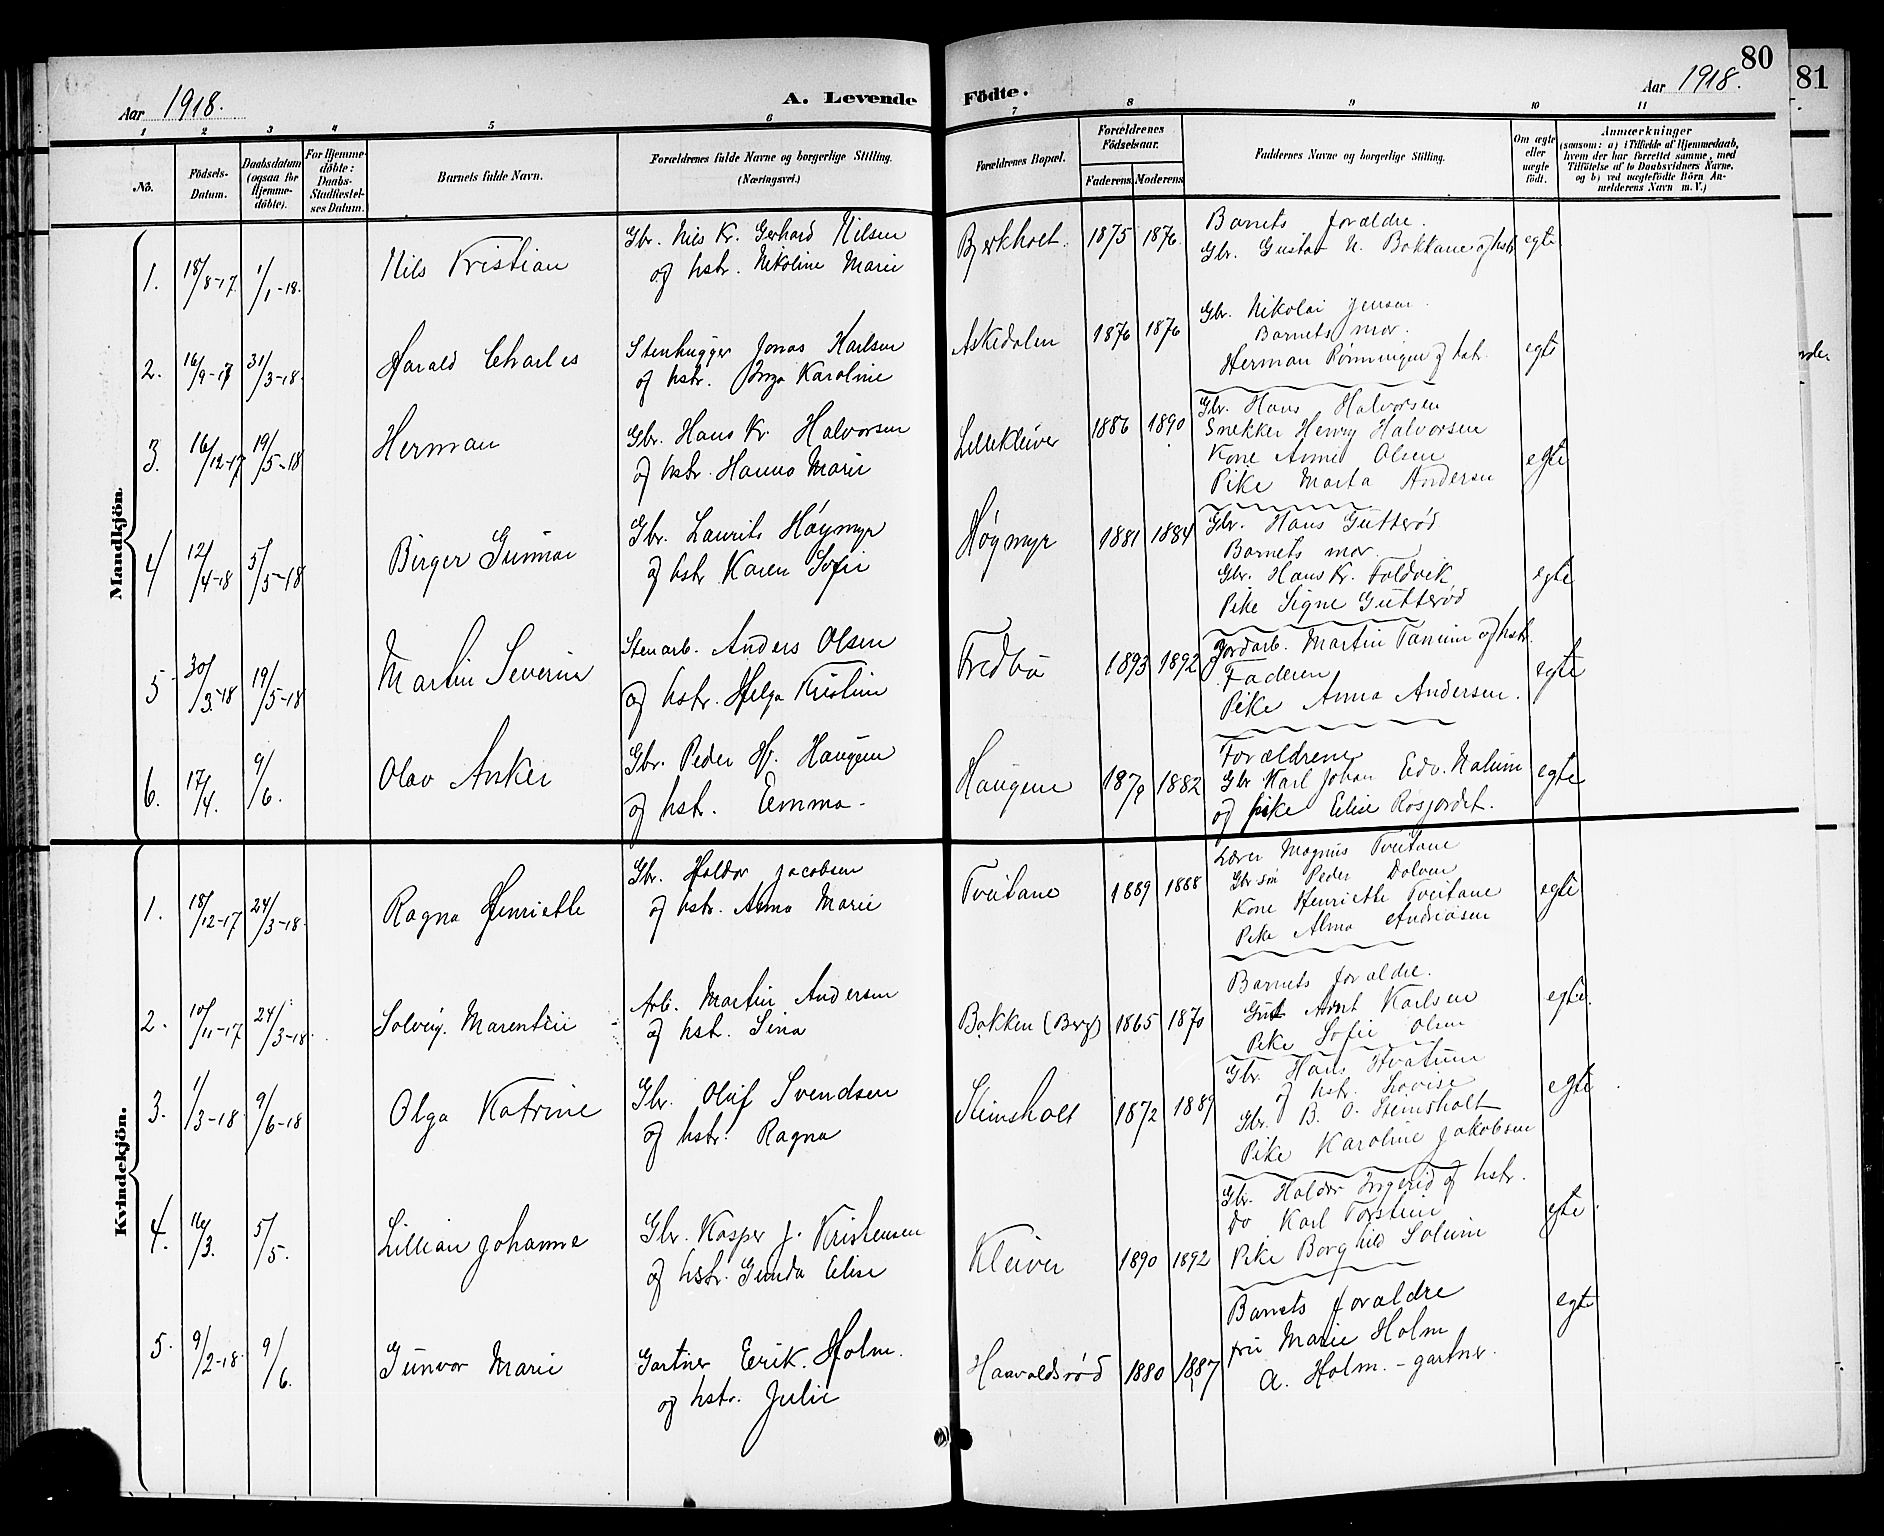 80
81
Aar 1918.
A. Levende
Födte.
Aar 1918.
1 2 3 4 5 6 7 8 9 10 11
No.
Födsels-
Datum.
Daabsdatum
(ogsaa for
Hjemme-
döbte).
For Hjemme-
döbte:
Daabs-
Stadfæstel-
ses Datum.
Barnets fulde Navn.
Forældrenes fulde Navne og borgerlige Stilling.
(Næringsvei.)
Forældrenes Bopæl.
Forældrenes
Födselsaar.
Faderens Moderens
Faddernes Navne og borgerlige Stilling.
Om ægte
eller
uægte
födt.
Anmærkninger
(saasom: a) i Tilfælde af Hjemmedaab,
hvem der har forrettet samme, med
Tilföielse af to Daabsvidners Navne.
og b) ved uægtefödte Börn An-
melderens Navn m. V.)
Mandkjön.
1. 18/8-17 1/1-18. Nils Kristian
Gbr. Nils Kr. Gerhard Nilsen
og hstr. Nikoline Marie
Bjerkholt. 1875 1876
Barnets forældre.
Gbr. Gustav N. Bakkane og hstr
egte
2. 16/9-17 31/3-18. Harald Charles
Stenhugger Jonas Karlsen
og hstr. Inga Karoline
Askedalen 1876 1876
Gbr. Nikolai Jensen.
Barnets mor.
Herman Rønningen og hstr.
egte
3. 16/12-17 19/5-18 Herman
Gbr. Hans Kr. Halvorsen
og hstr. Hanna Marie
Lillekleiver 1886 1890
Gbr. Hans Halvorsen
Snekker Henry Halvorsen
Kone Anne Olsen
Pike Marta Andersen
egte
4 12/4-18 5/5-18 Birger Gunnar
Gbr. Laurits Høymyr
og hstr Karen Sofie
Høymyr 1881 1884
Gbr. Hans Gutterød
Barnets mor.
Gbr. Hans Kr. Foldvik
Pike Signe Gutterød
egte
5 30/3-18 19/5-18 Martin Severin
Stenarb. Anders Olsen
og hstr. Helga Kristine
Fredbo 1893 1892
Jordarb. Martin Tanum og hstr.
Faderen
Pike Anna Andersen.
egte
6. 17/4. 9/6. Olav Anker
Gbr. Peder Hf. Haugen
og hstr. Emma
Haugene 1882
Forældrene
Gbr Karl Johan Edv. Nalum
og pike Elise Rosjordet.
egte
Kvindekjön.
1. 18/12-17 24/3-18. Ragna Henriette
Gbr. Haldor Jacobsen
og hstr. Anna Marie
Tveitane 1889 1888
Lærer Magnus Tveitane
Gbr søn Peder Dolven
Kone Henriette Tveitane
Pike Alma Andreasen
egte
2. 10/11-17 24/3-18. Solveig Marentin
Arb. Martin Andersen
og hstr. Sina
Bakken (Berg) 1865 1870
Barnets forældre.
Gut Arnt Karlsen
Pike Sofie Olsen
egte.
3. 1/3-18 9/6-18 Olga Katrine
Gbr. Oluf Svendsen
og hstr. Ragna
Steinsholt 1872 1889
Gbr. Hans Hvatum
og hstr. Lovise
Gbr. B. O. Steinsholt
Pike Karoline Jakobsen
egte
4. 16/3. 5/5. Lillian Johanne
Gbr. Kasper J. Kristensen
og hstr. Gunda Elise
Kleiver 1890 1892
Gbr. Haldor Ingerid og hstr.
Do Karl Torstein
Pike Borghild Solum
egte.
5. 9/2-18. 9/6. Gunvor Marie
Gartner Erik. Holm.
og hstr. Julie
Haavaldsrød 1880 1887
Barnets forældre
fru Marie Holm
A. Holm. - gartner.
egte